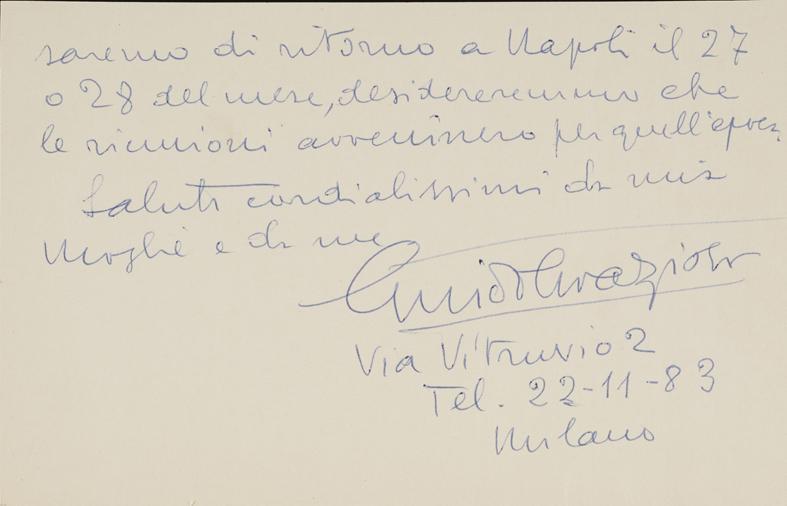 saremo di ritorno a Napoli il 27
o 28 del mese, desidereremmo che
le riunioni avvenissero per quell'epoca,
Saluti cordialissimi da mia
Moglie e da me
Guido
Via Vitruvio 2
Tel. 22-11-83
Milano